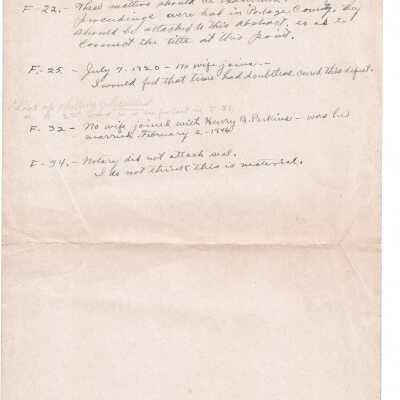 F-22.- These matters should be
proceedings were had in Portage County, they
should be attached to this abstract, so as to
connect the title at this point.
F.-25 - July 7. 1820 - No wife joins.-
I would feel that time had doubtless cured this defect.
F.-32 - No wife joined with Henry Perkins - was he
married February 2-1846
F-34.- Notary did not attach seal.
I do not think this is material.